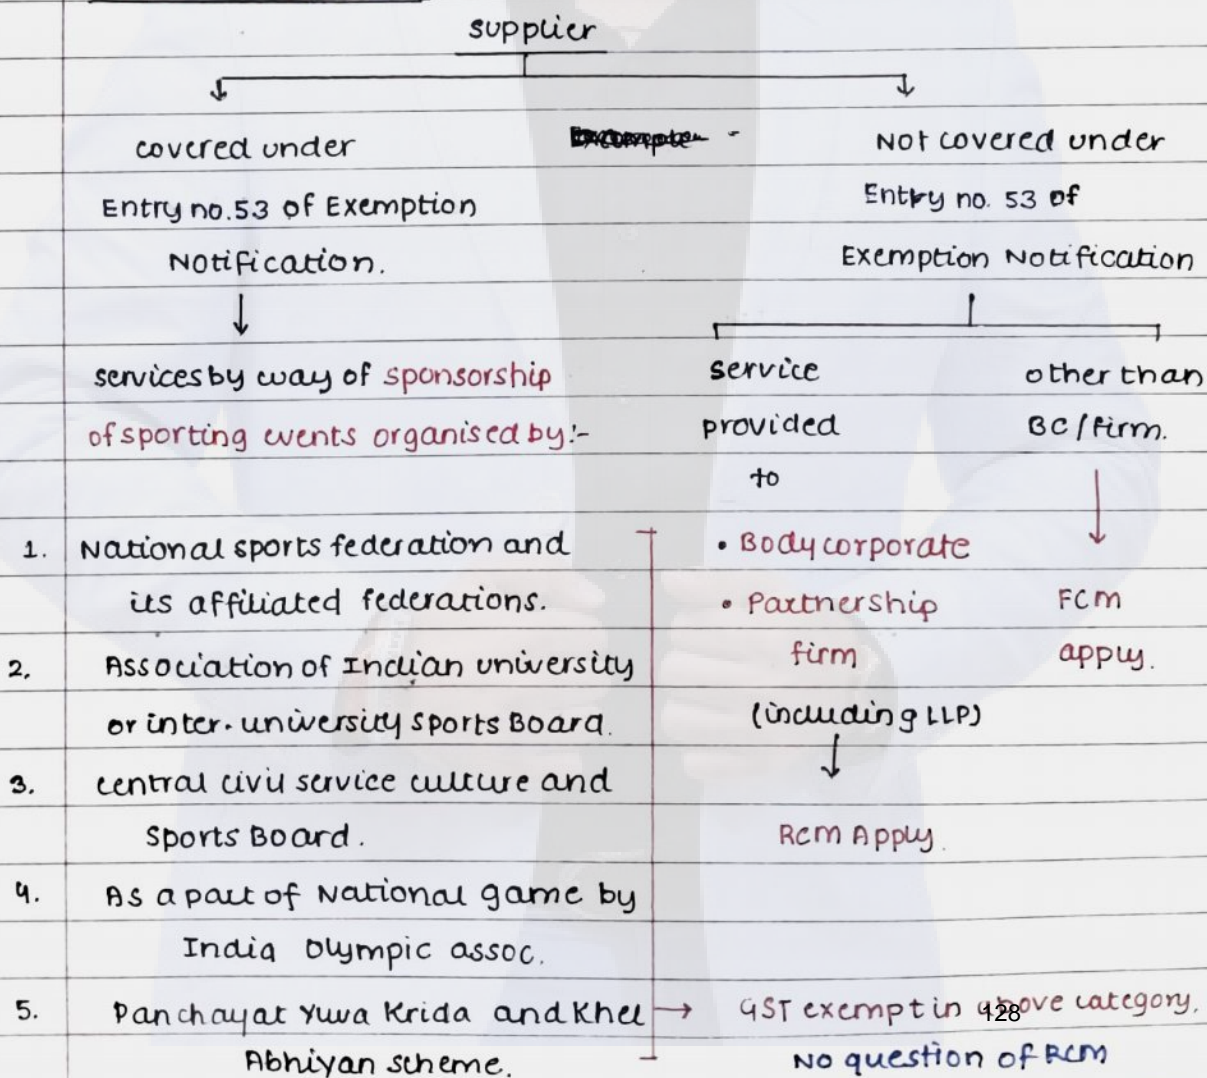 supplier
covered under
Entry no.53 of Exemption
Notification.
services by way of sponsorship
of sporting events organised by:-
1. National sports federation and
its affiliated federations.
2. Association of Indian university
or inter. university sports Board.
3. central civil service culture and
Sports Board.
4. As a part of National game by
India Olympic assoc.
5. Panchayat Yuva Krida and Khel
Abhiyan scheme.
Not covered under
Entry no. 53 of
Exemption Notification
service
provided
to
• Body corporate
• Partnership
firm
(including LLP)
RCM Apply.
other than
BC/Firm.
FCM
apply.
→ GST exempt in above category.
No question of RCM
128